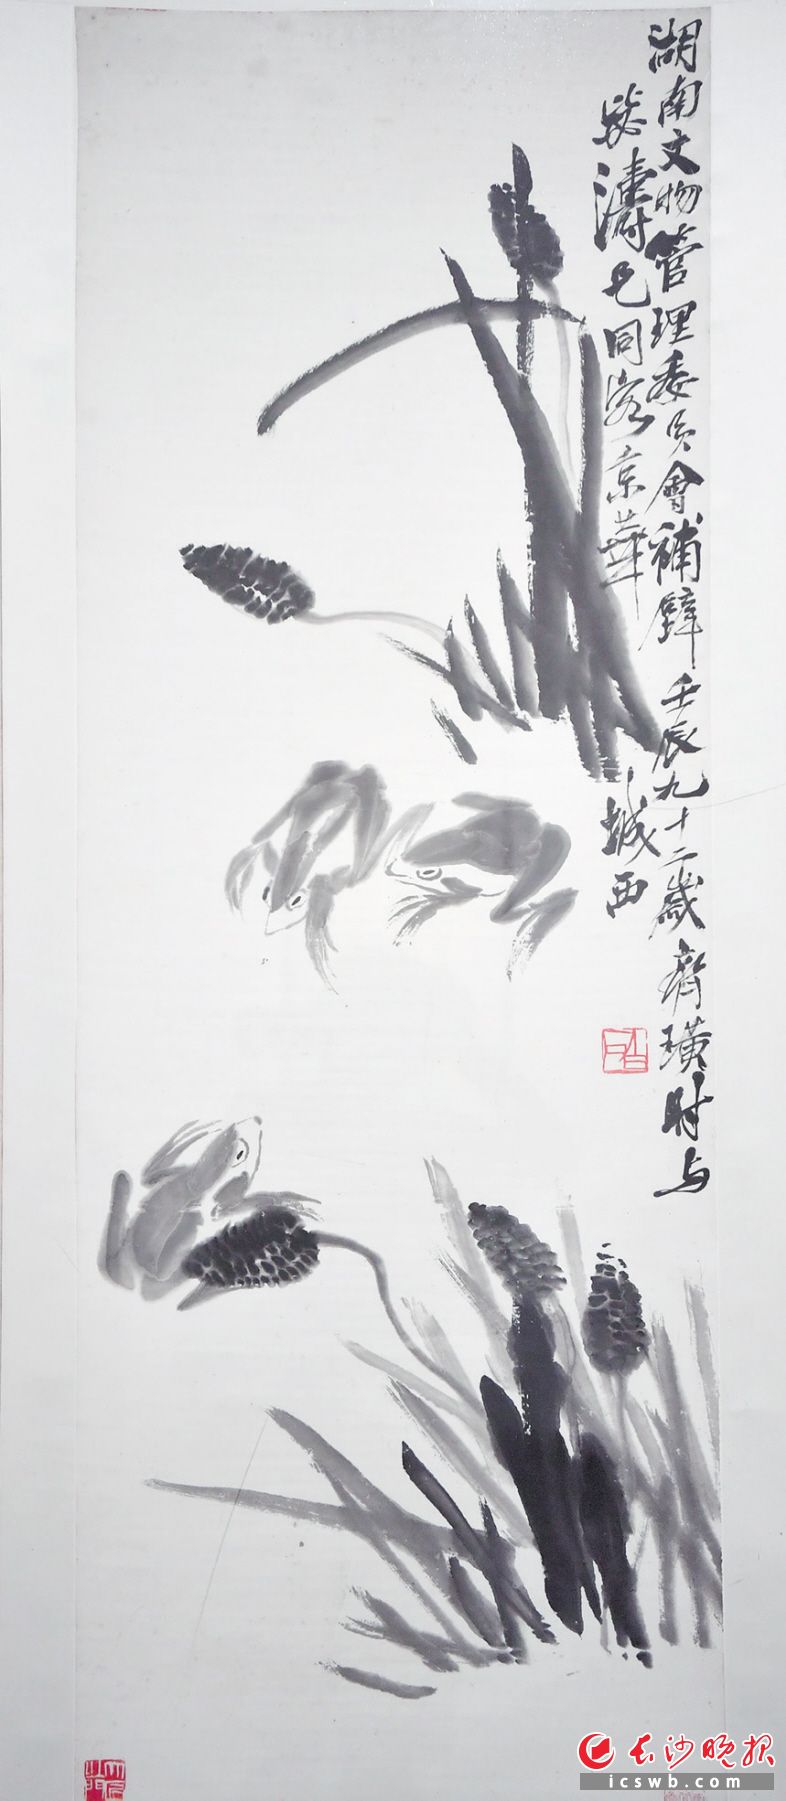 湖南文物管理委员會補壁 壬辰九十二歲齊璜時与
濤兄同客京華 城西
白石
大匠之門
长沙晚报
icswb.com